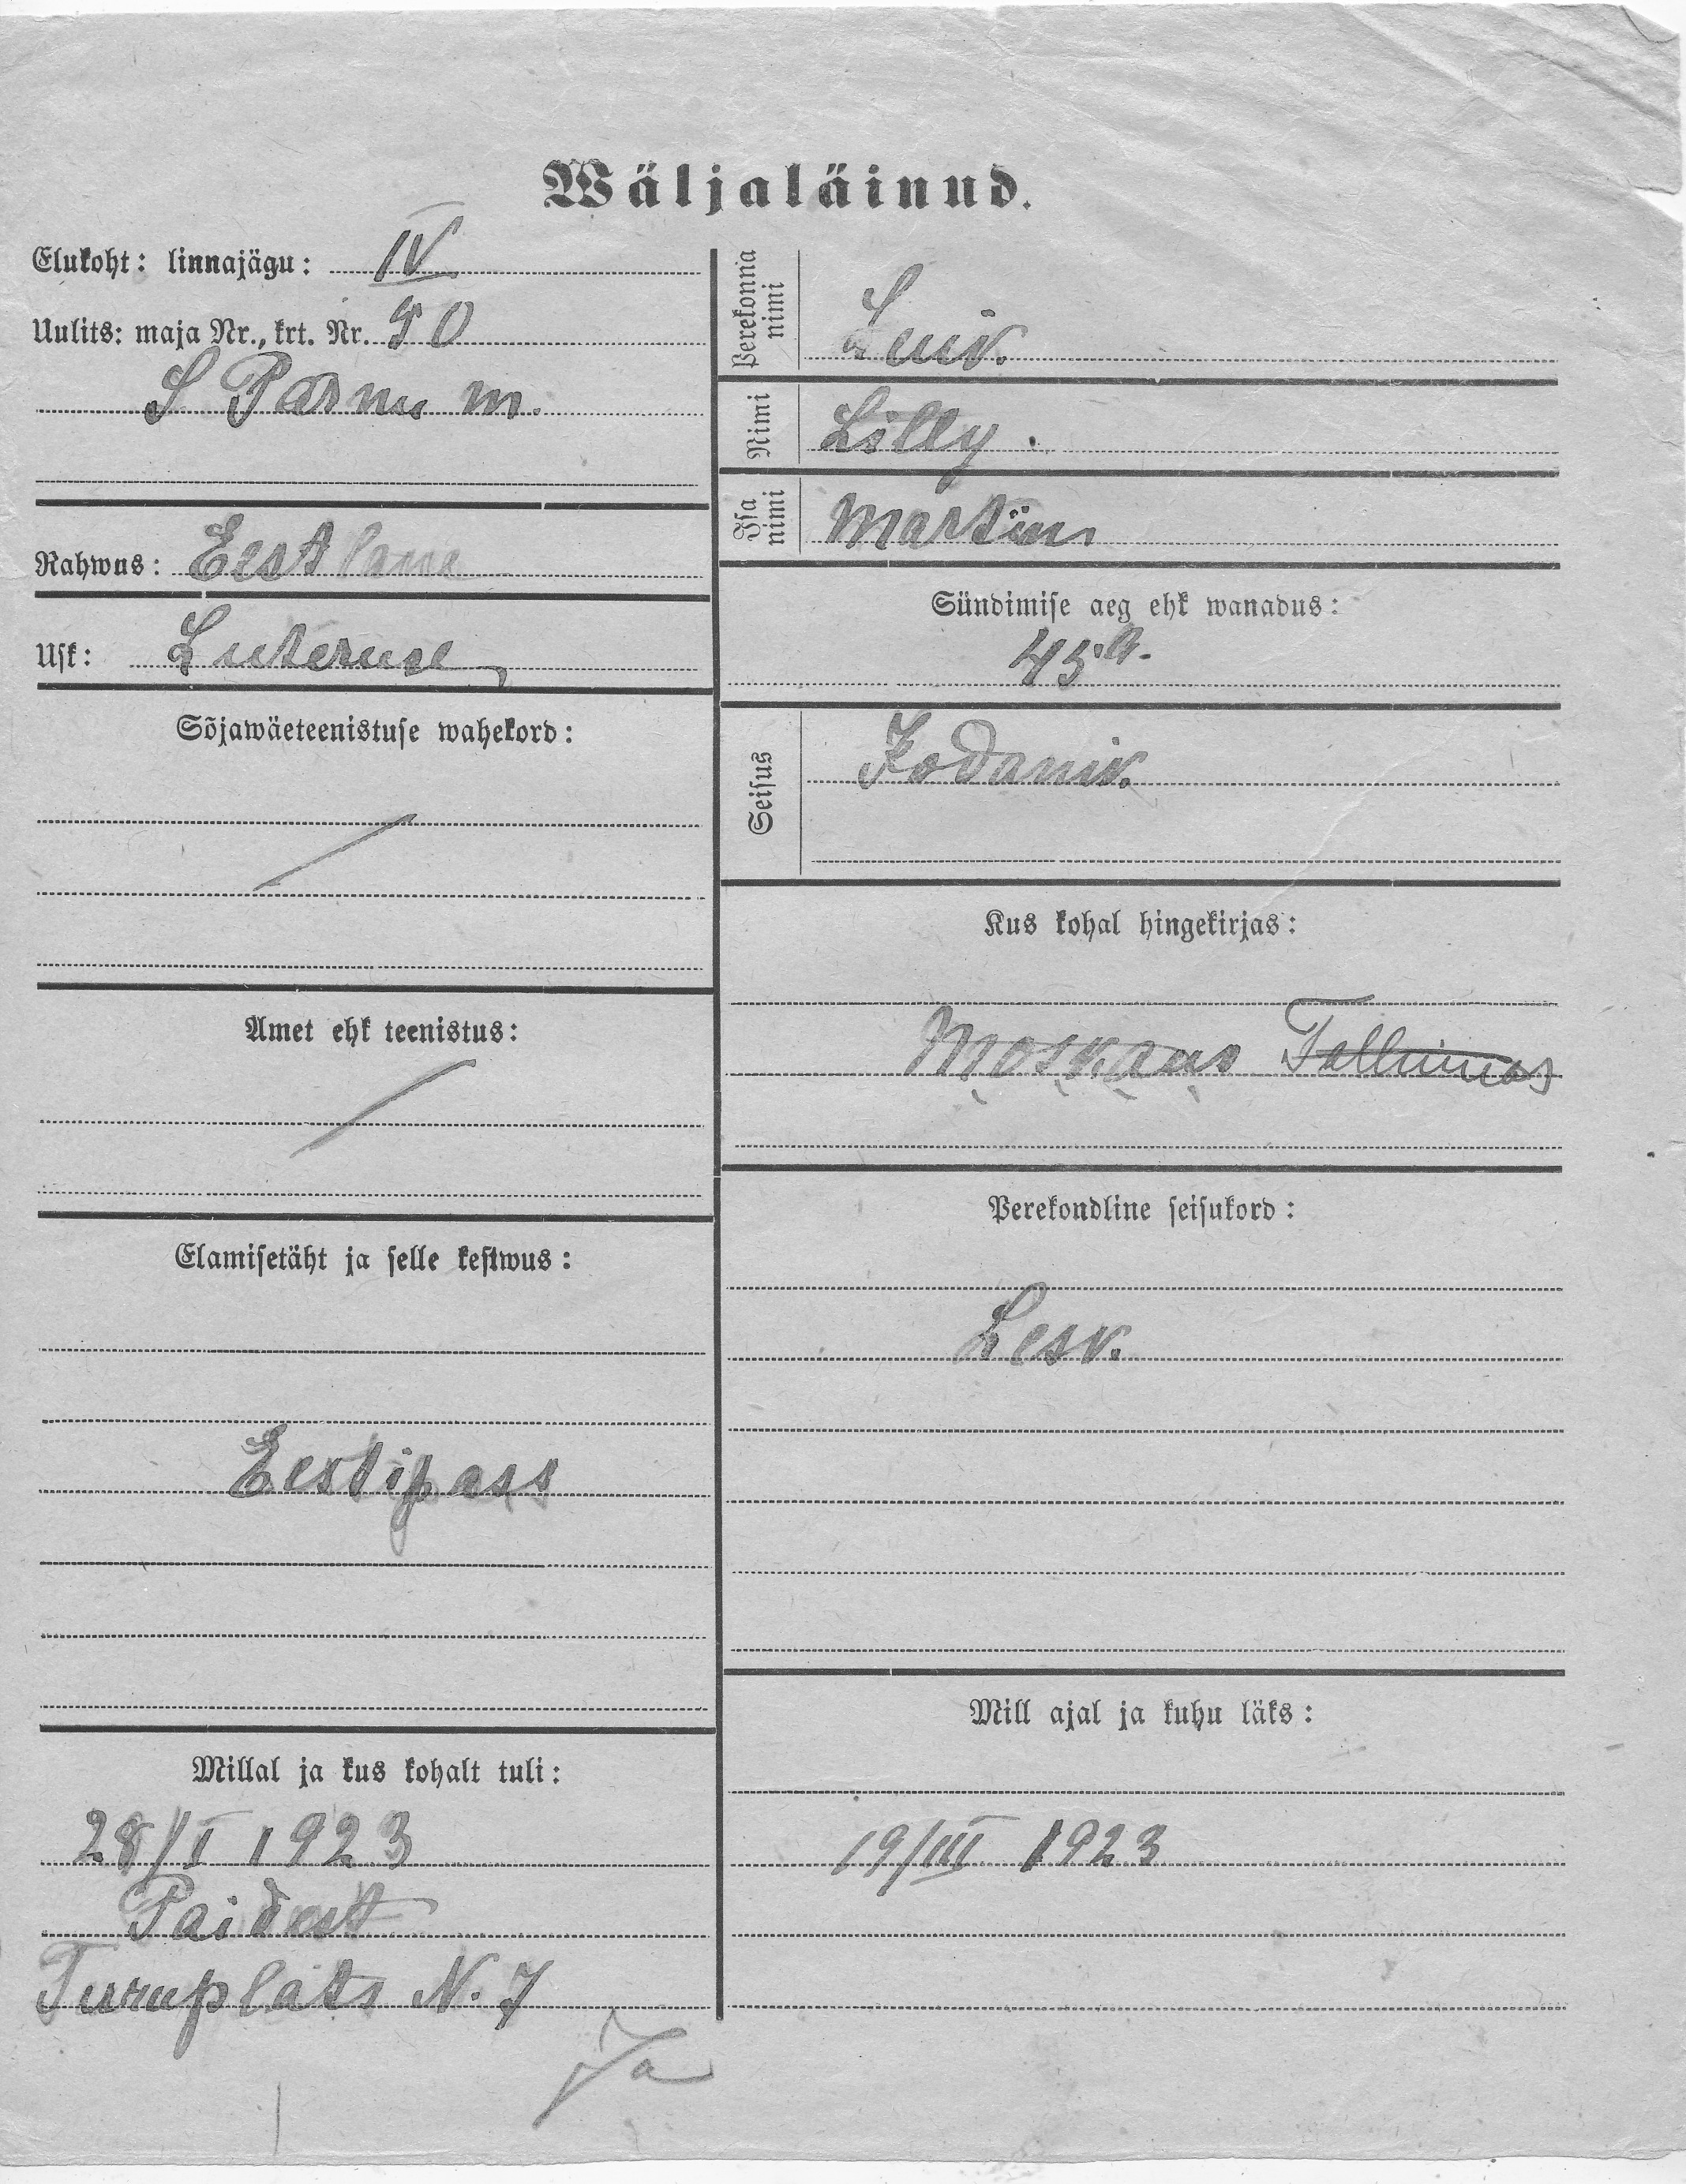 Wäljaläinud.
Elukoht: linnajägu: IV
Uulits: maja Nr., krt. Nr. 50
S Pärnu m.
Rahwus: Eestlane
Usk: Luteruse
Sõjawäeteenistuse wahekord:
Amet ehk teenistus:
Elamisetäht ja selle kestwus:
Eestipass
Millal ja kus kohalt tuli:
28/I 1923
Paidest
Turuplats N. 7
Ja
Perekonna nimi
Luik.
Nimi Lilly.
Isa nimi Martin
Sündimise aeg ehk wanadus:
45 a.
Seisus Kodanik.
Kus kohal hingekirjas:
Moskvas Tallinnas
Perekondline seisukord:
Lesk.
Mill ajal ja kuhu läks:
19/III 1923